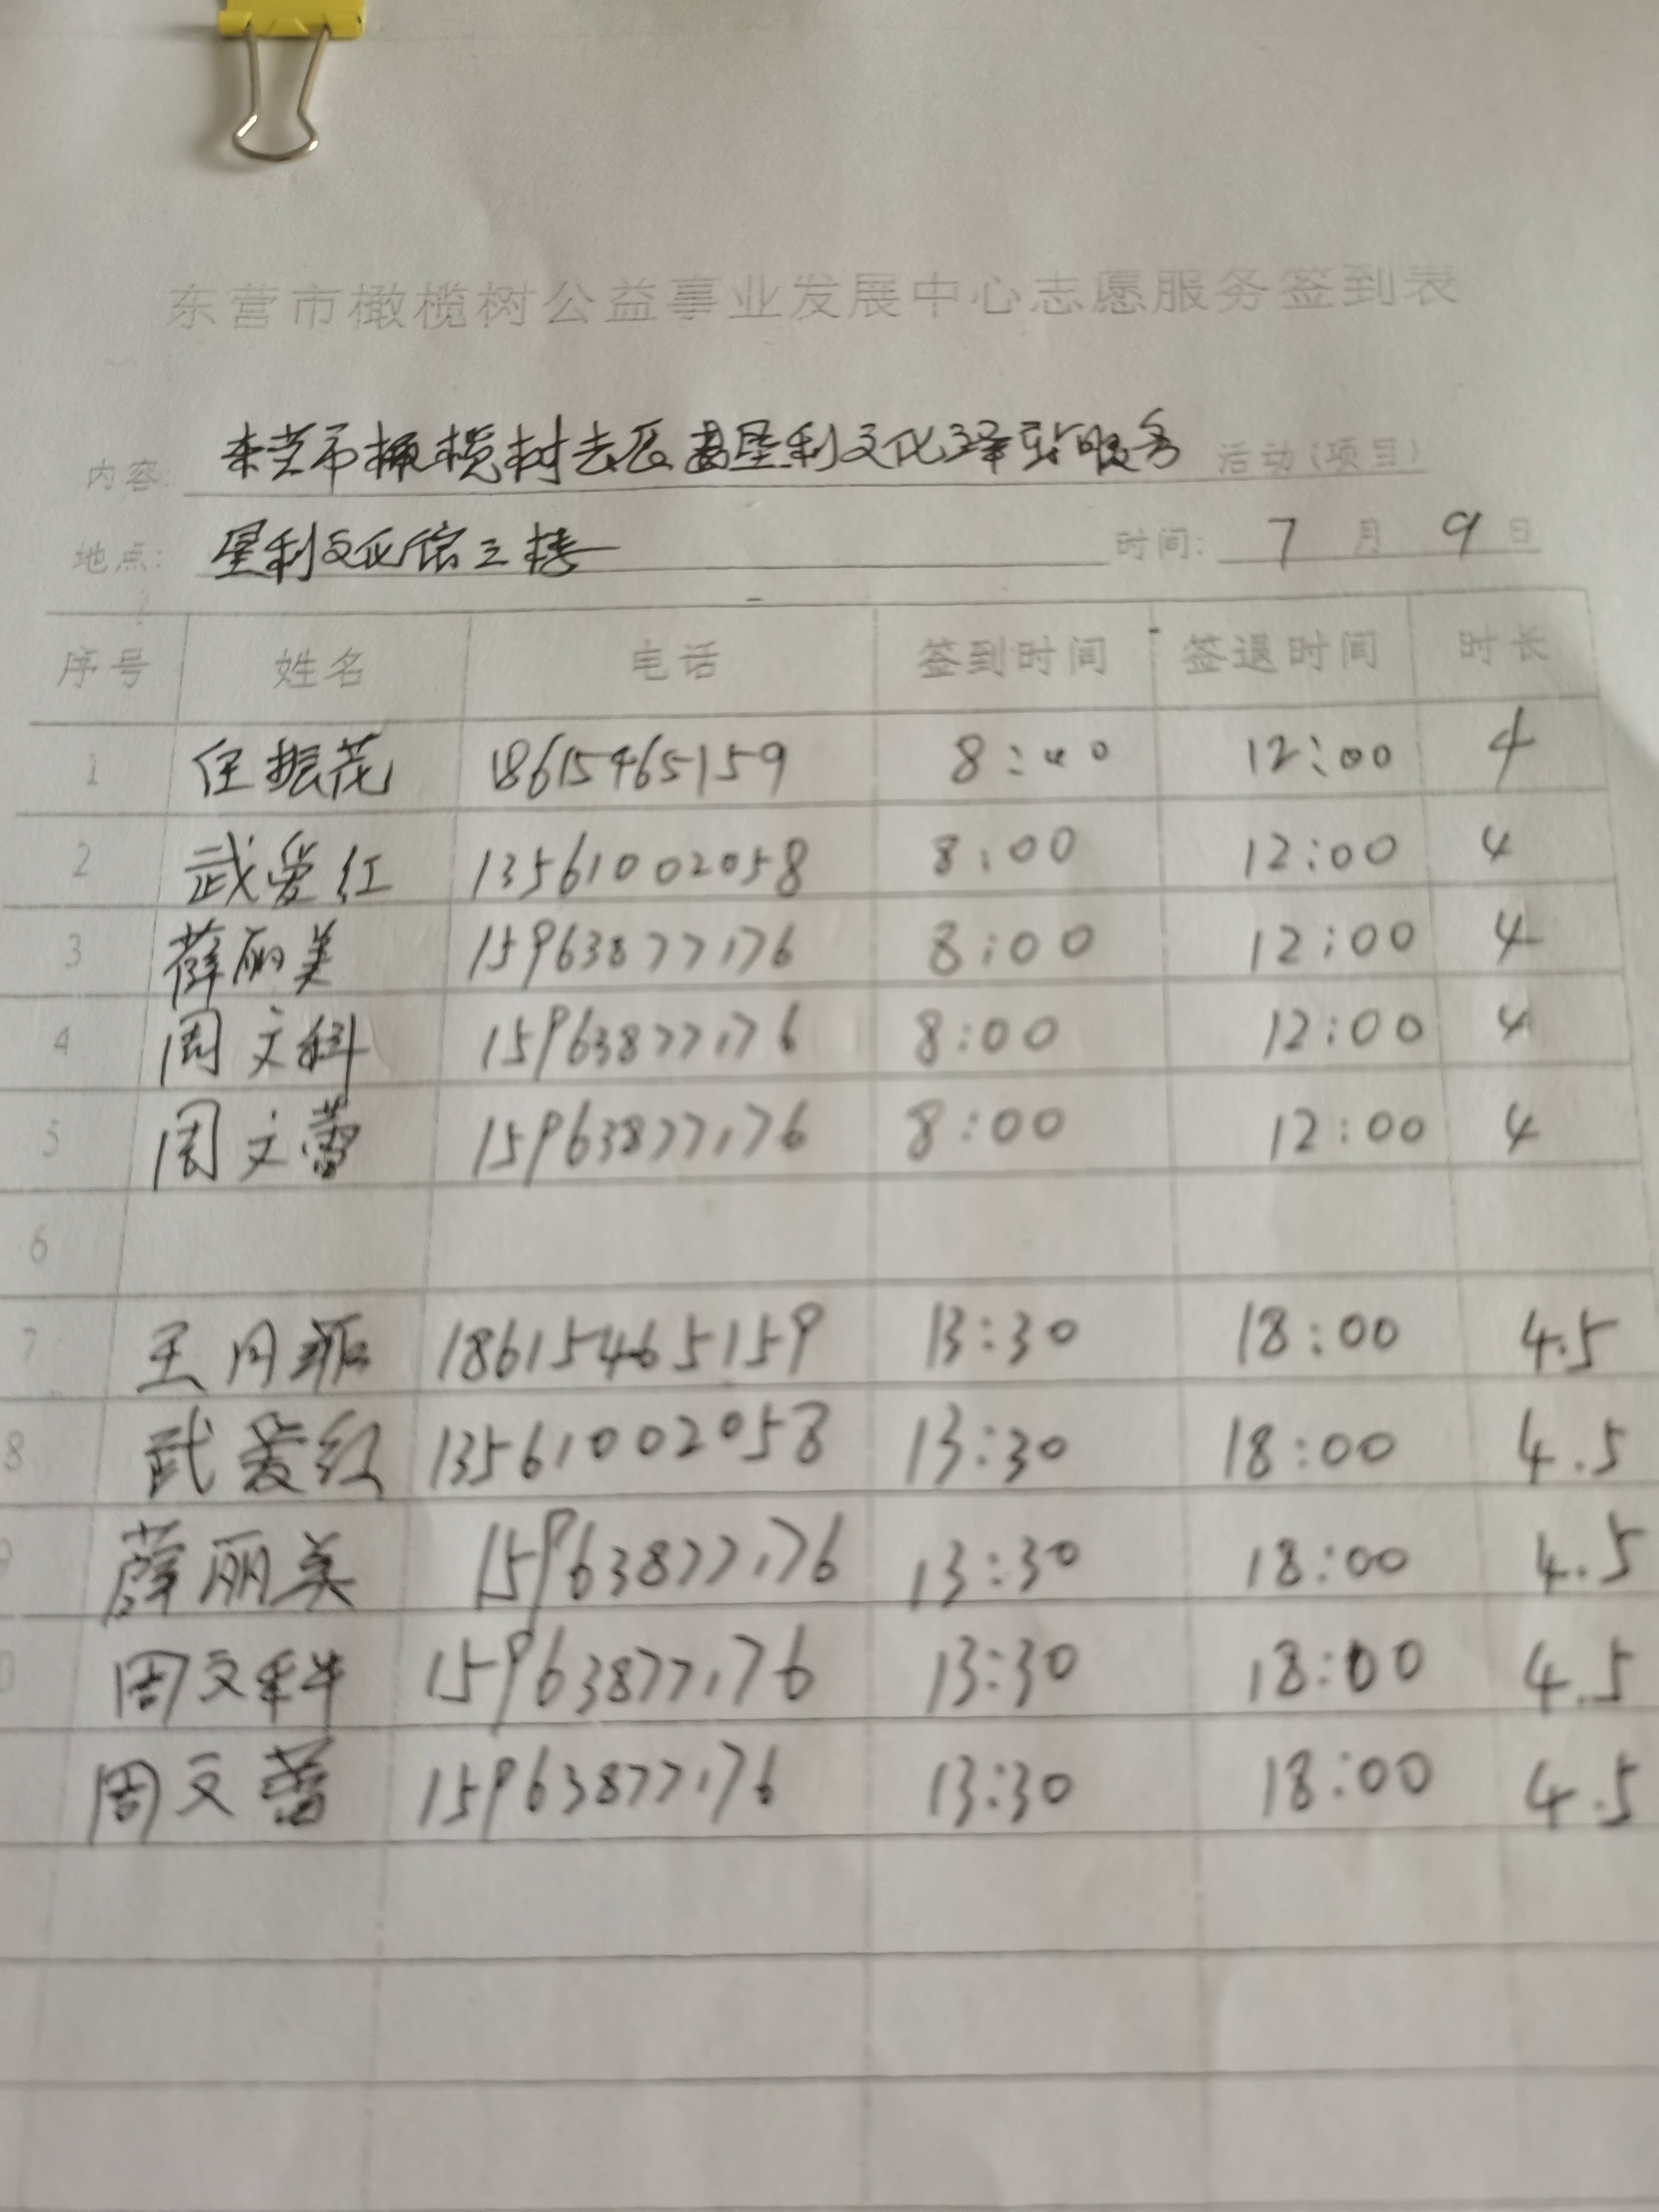 东营市橄榄树公益事业发展中心志愿服务签到表
内容: 东营市橄榄树志愿者垦利文化驿站服务 活动(项目)
地点: 垦利文化馆三楼 时间: 7 月 9 日
序号 姓名 电话 签到时间 签退时间 时长
1 任振花 18615465159 8:00 12:00 4
2 武爱红 13561002058 8:00 12:00 4
3 薛丽美 15963877176 8:00 12:00 4
4 周文科 15963877176 8:00 12:00 4
5 周文蕾 15963877176 8:00 12:00 4
6
7 王月 18615465159 13:30 18:00 4.5
8 武爱红 13561002058 13:30 18:00 4.5
薛丽美 15963877176 13:30 18:00 4.5
周文科 15963877176 13:30 18:00 4.5
周文蕾 15963877176 13:30 18:00 4.5